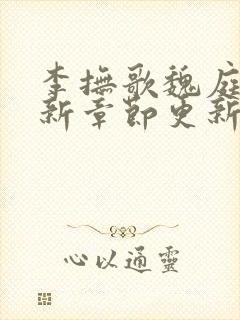 李撫歌魏庭
新章節更新
心以通靈